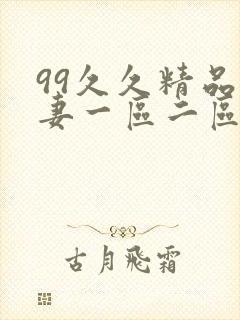 99久久精品
妻一區二區
古月飛霜